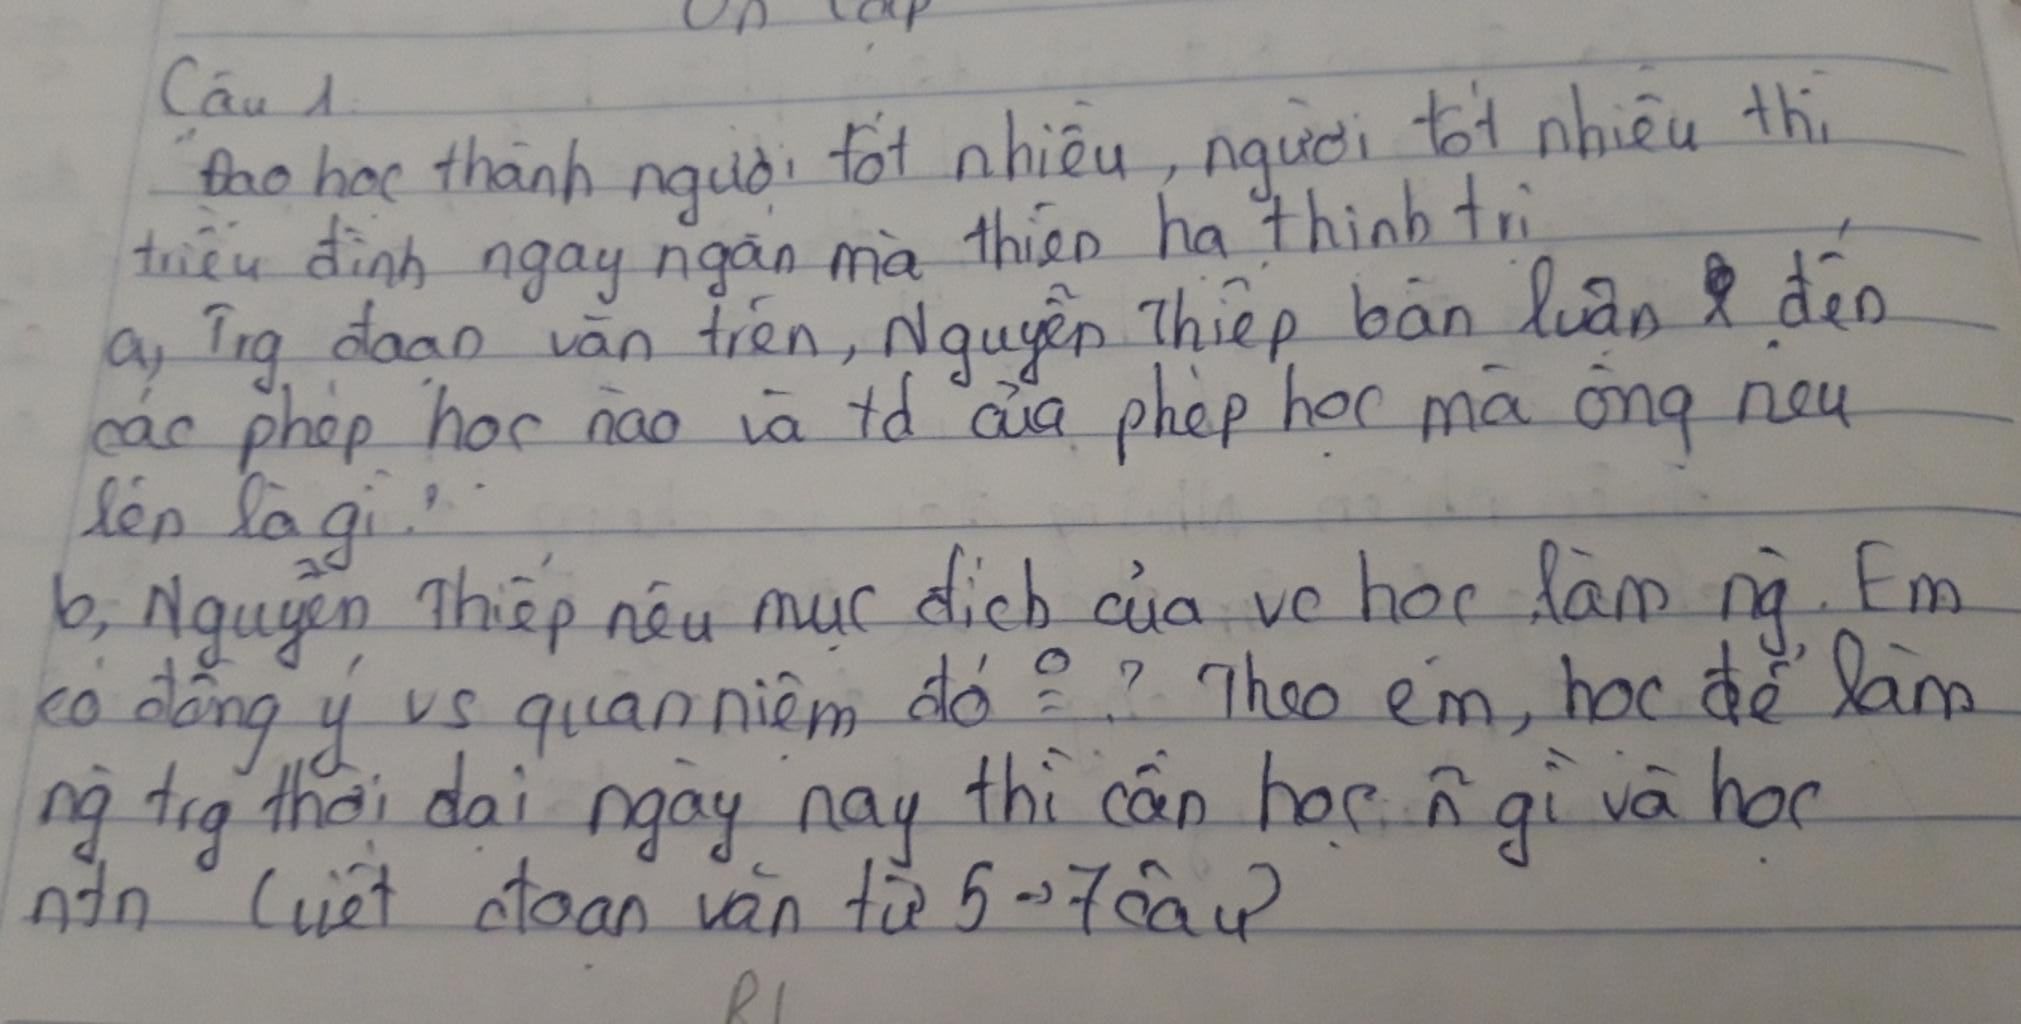 Ôn tập
Câu 1
"Đạo học thành người tốt nhiều, người tốt nhiều thì
triều đình ngay ngắn mà thiên hạ thịnh trị
a, Trg đoạn văn trên, Nguyễn Thiếp bàn luận đến
các phép học nào và td của phép học mà ông nêu
lên là gì?
b, Nguyễn Thiếp nêu mục đích của vc học làm ng. Em
có đồng ý vs quan niệm đó ? Theo em, học để làm
ng trg thời đại ngày nay thì cần học n~ gì và học
ntn (viết đoạn văn từ 5->7 câu)